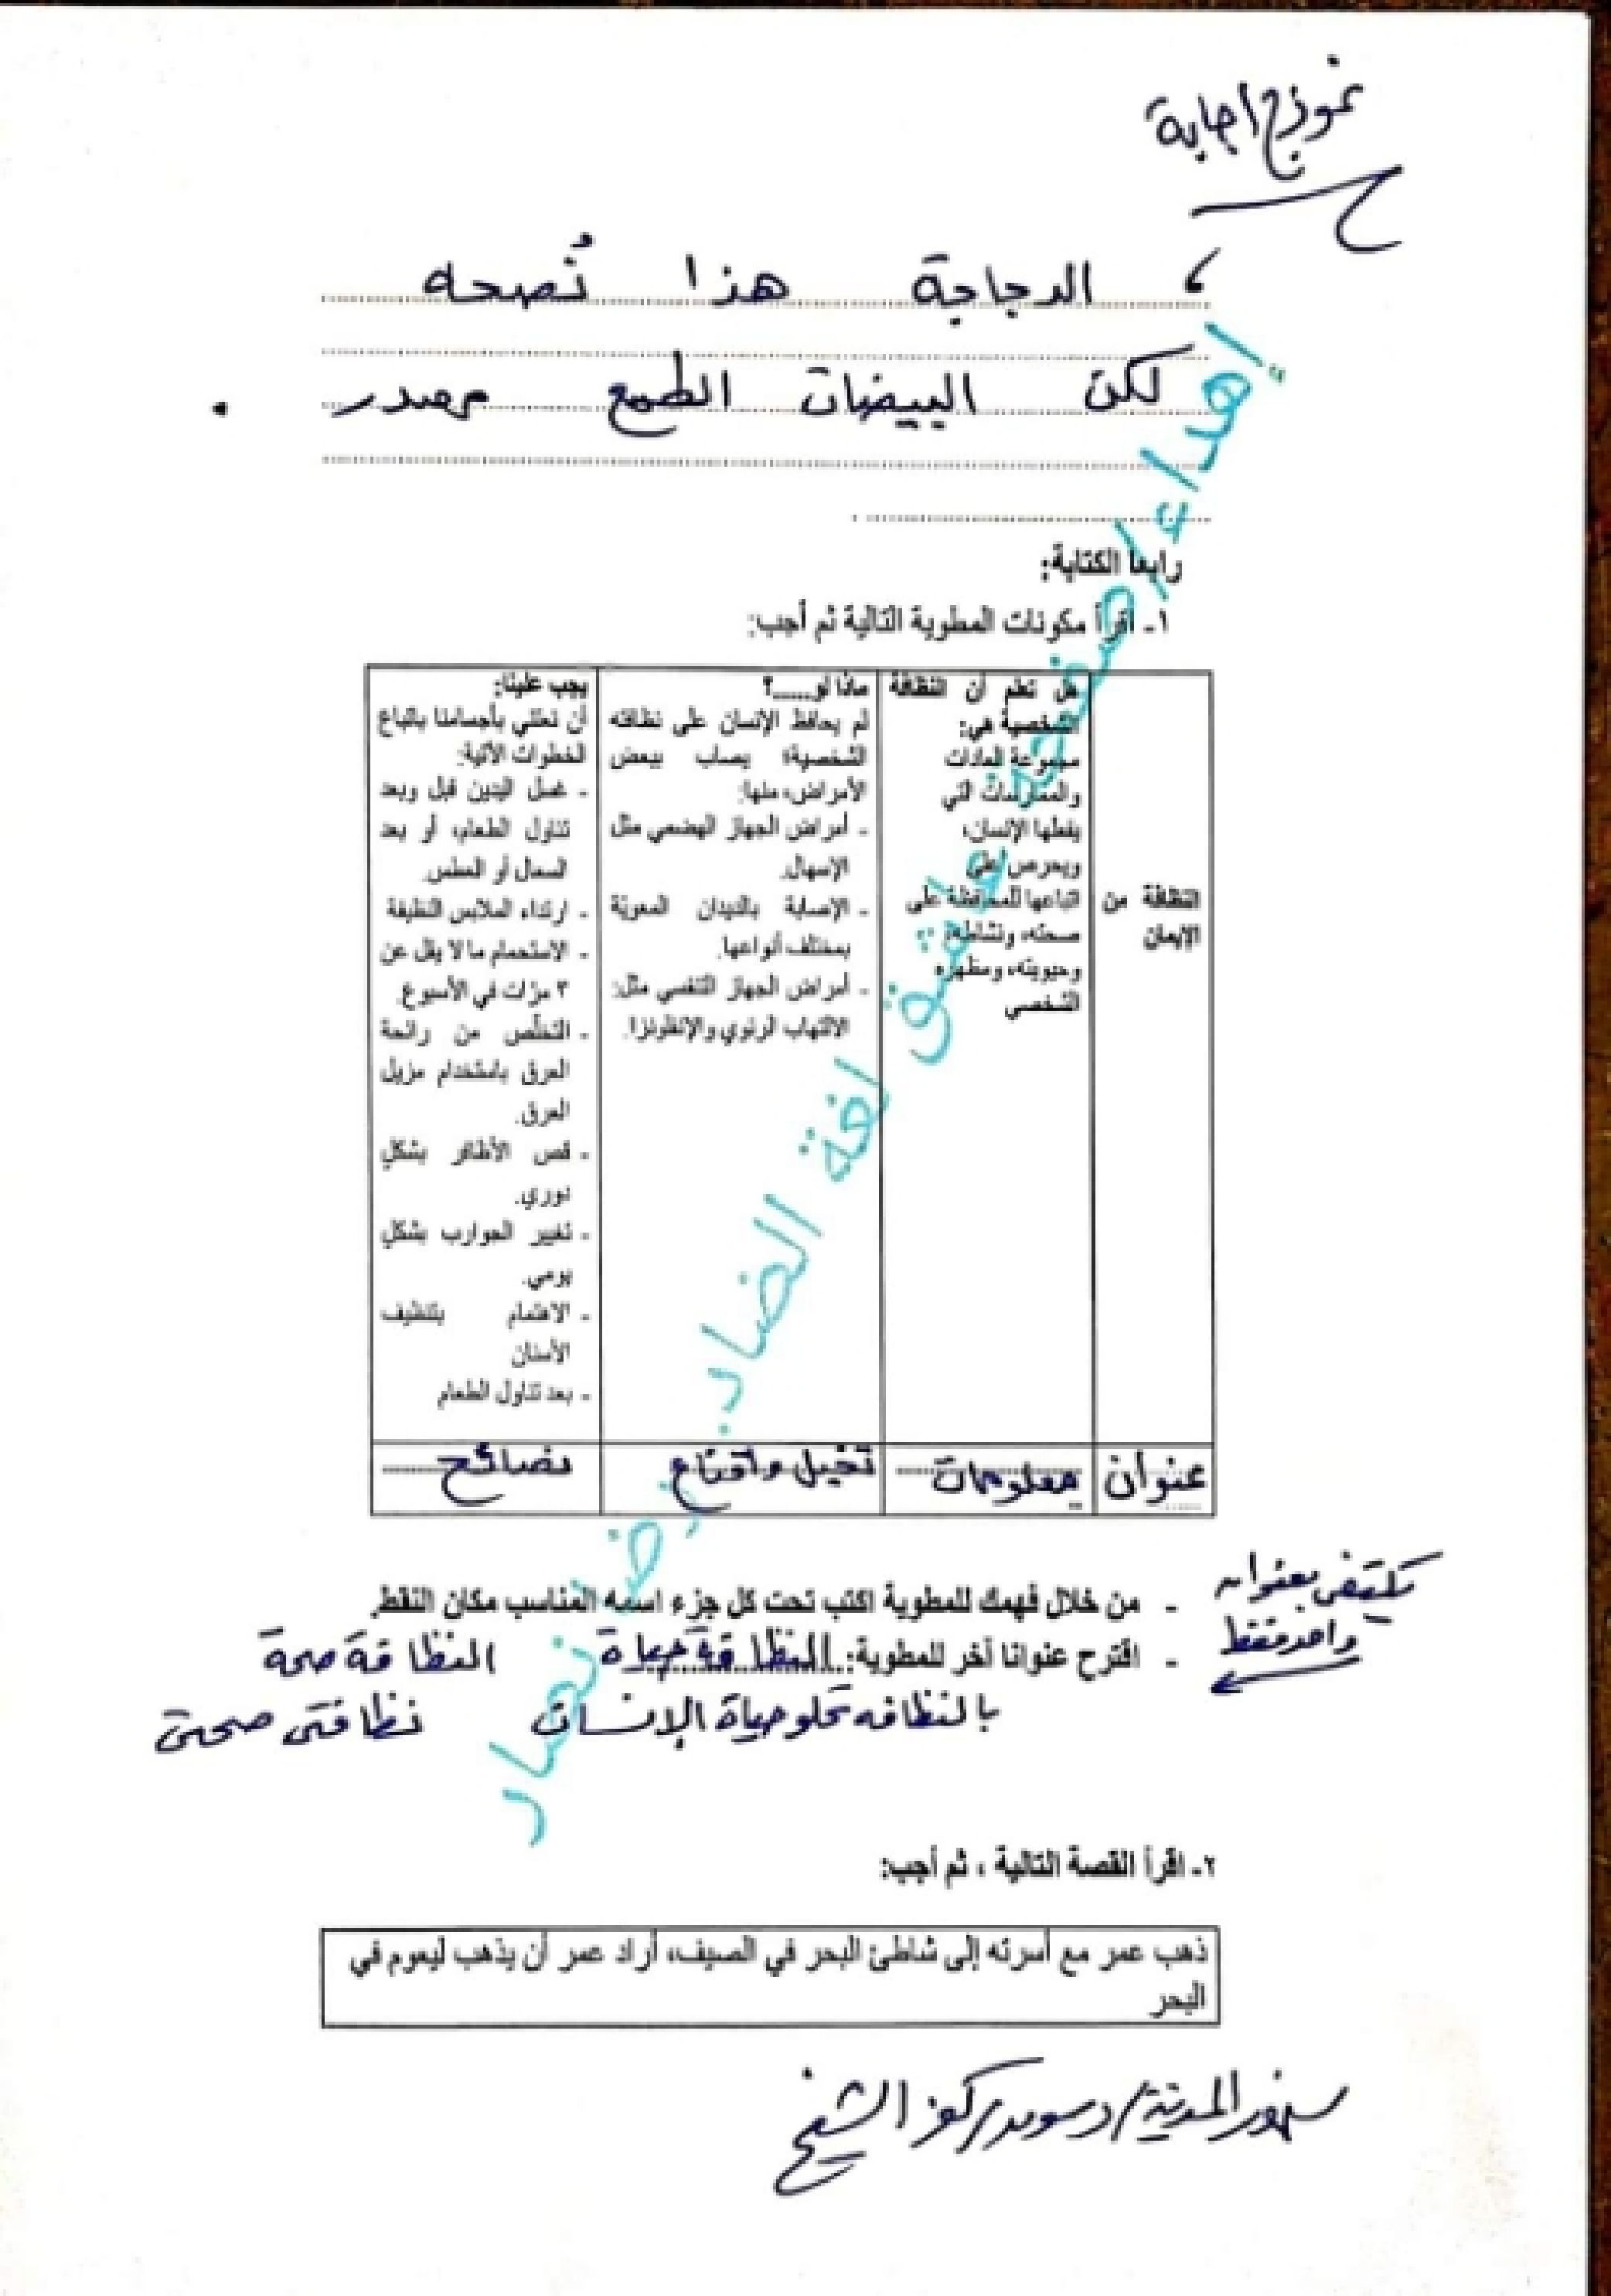 نموذج إجابة
، الدجاجة هذا نُصحه
لكن البيضات الطمع مصدر .
رابعا الكتابة:
١- اقرأ مكونات المطوية التالية ثم أجب:
النظافة من
الإيمان
هل تعلم أن النظافة
الشخصية هي:
مجموعة العادات
والممارسات التي
يفعلها الإنسان،
ويحرص على
اتباعها للمحافظة على
صحته، ونشاطه،
وحيويته، ومظهره
الشخصي
ماذا لو......؟
لم يحافظ الإنسان على نظافته
الشخصية؛ يصاب ببعض
الأمراض، منها:
- أمراض الجهاز الهضمي مثل
الإسهال.
- الإصابة بالديدان المعويّة
بمختلف أنواعها.
- أمراض الجهاز التنفسي مثل:
الالتهاب الرئوي والإنفلونزا.
يجب علينا:
أن نعتني بأجسامنا باتباع
الخطوات الآتية:
- غسل اليدين قبل وبعد
تناول الطعام، أو بعد
السعال أو العطس.
- ارتداء الملابس النظيفة
- الاستحمام ما لا يقل عن
٣ مرّات في الأسبوع.
- التخلّص من رائحة
العرق باستخدام مزيل
العرق.
- قص الأظافر بشكلٍ
دوري.
- تغيير الجوارب بشكلٍ
يومي.
- الاهتمام بتنظيف
الأسنان
- بعد تناول الطعام
عنوان
معلومات
تخيل وإقناع
نصائح
- من خلال فهمك للمطوية اكتب تحت كل جزء اسمه المناسب مكان النقط.
يكتفى بعنوان
واحد فقط
- اقترح عنوانا آخر للمطوية: النظافة حياة النظافة صحة
بالنظافة تحلو حياة الإنسان نظافتى صحتى
٢- اقرأ القصة التالية ، ثم أجب:
ذهب عمر مع أسرته إلى شاطئ البحر في الصيف، أراد عمر أن يذهب ليعوم في
البحر
سنهور المدينة / دسوق / كفر الشيخ
إهداء / صفحة عاشق لغة الضاد. نصار